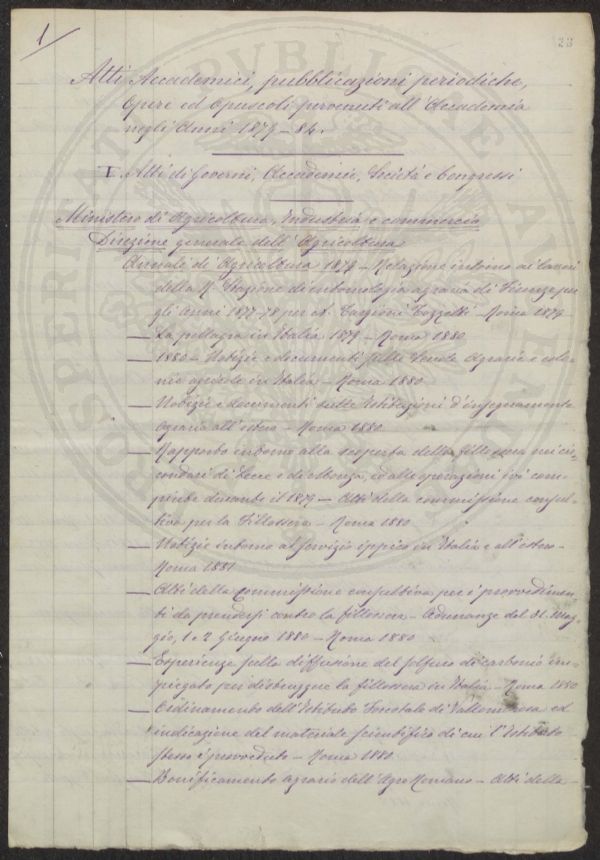 1
23
Atti Accademici, pubblicazioni periodiche,
Opere ed Opuscoli pervenuti all'Accademia
negli Anni 1879-84.
I. Atti di Governi, Accademie, Società e Congressi
Ministero di Agricoltura, Industria e commercio
Direzione generale dell'Agricoltura
Annali di Agricoltura 1879 - Relazione intorno ai lavori
della R. Stazione di entomologia agraria di Firenze per
gli anni 1877-78 per Ad. Targioni Tozzetti - Roma 1879
— La pellagra in Italia 1879 - Roma 1880
— 1880 - Notizie e documenti sulle Scuole Agrarie e colo-
nie agricole in Italia - Roma 1880
— Notizie e documenti sulle Istituzioni d'insegnamento
agrario all'estero - Roma 1880
— Rapporto intorno alla scoperta della fillossera nei cir-
condari di Lecco e di Monza, ed alle operazioni ivi com-
piute durante il 1879 - Atti della commissione consul-
tiva per la Fillossera - Roma 1880
— Notizie intorno al servizio ippico in Italia e all'estero -
Roma 1881
— Atti della Commissione consultiva per i provvedimen-
ti da prendersi contro la fillossera - Adunanze del 31. Mag-
gio, 1 e 2 Giugno 1880 - Roma 1880
— Esperienze sulla diffusione del solfuro di carbonio im-
piegato per distruggere la fillossera in Italia - Roma 1880
— Ordinamento dell'Istituto Forestale di Vallombrosa ed
indicazione del materiale scientifico di cui l'Istituto
stesso è provveduto - Roma 1880
— Bonificamento agrario dell'Agro Romano - Atti della
PROSPERITATI PUBLICAE AUGENDAE